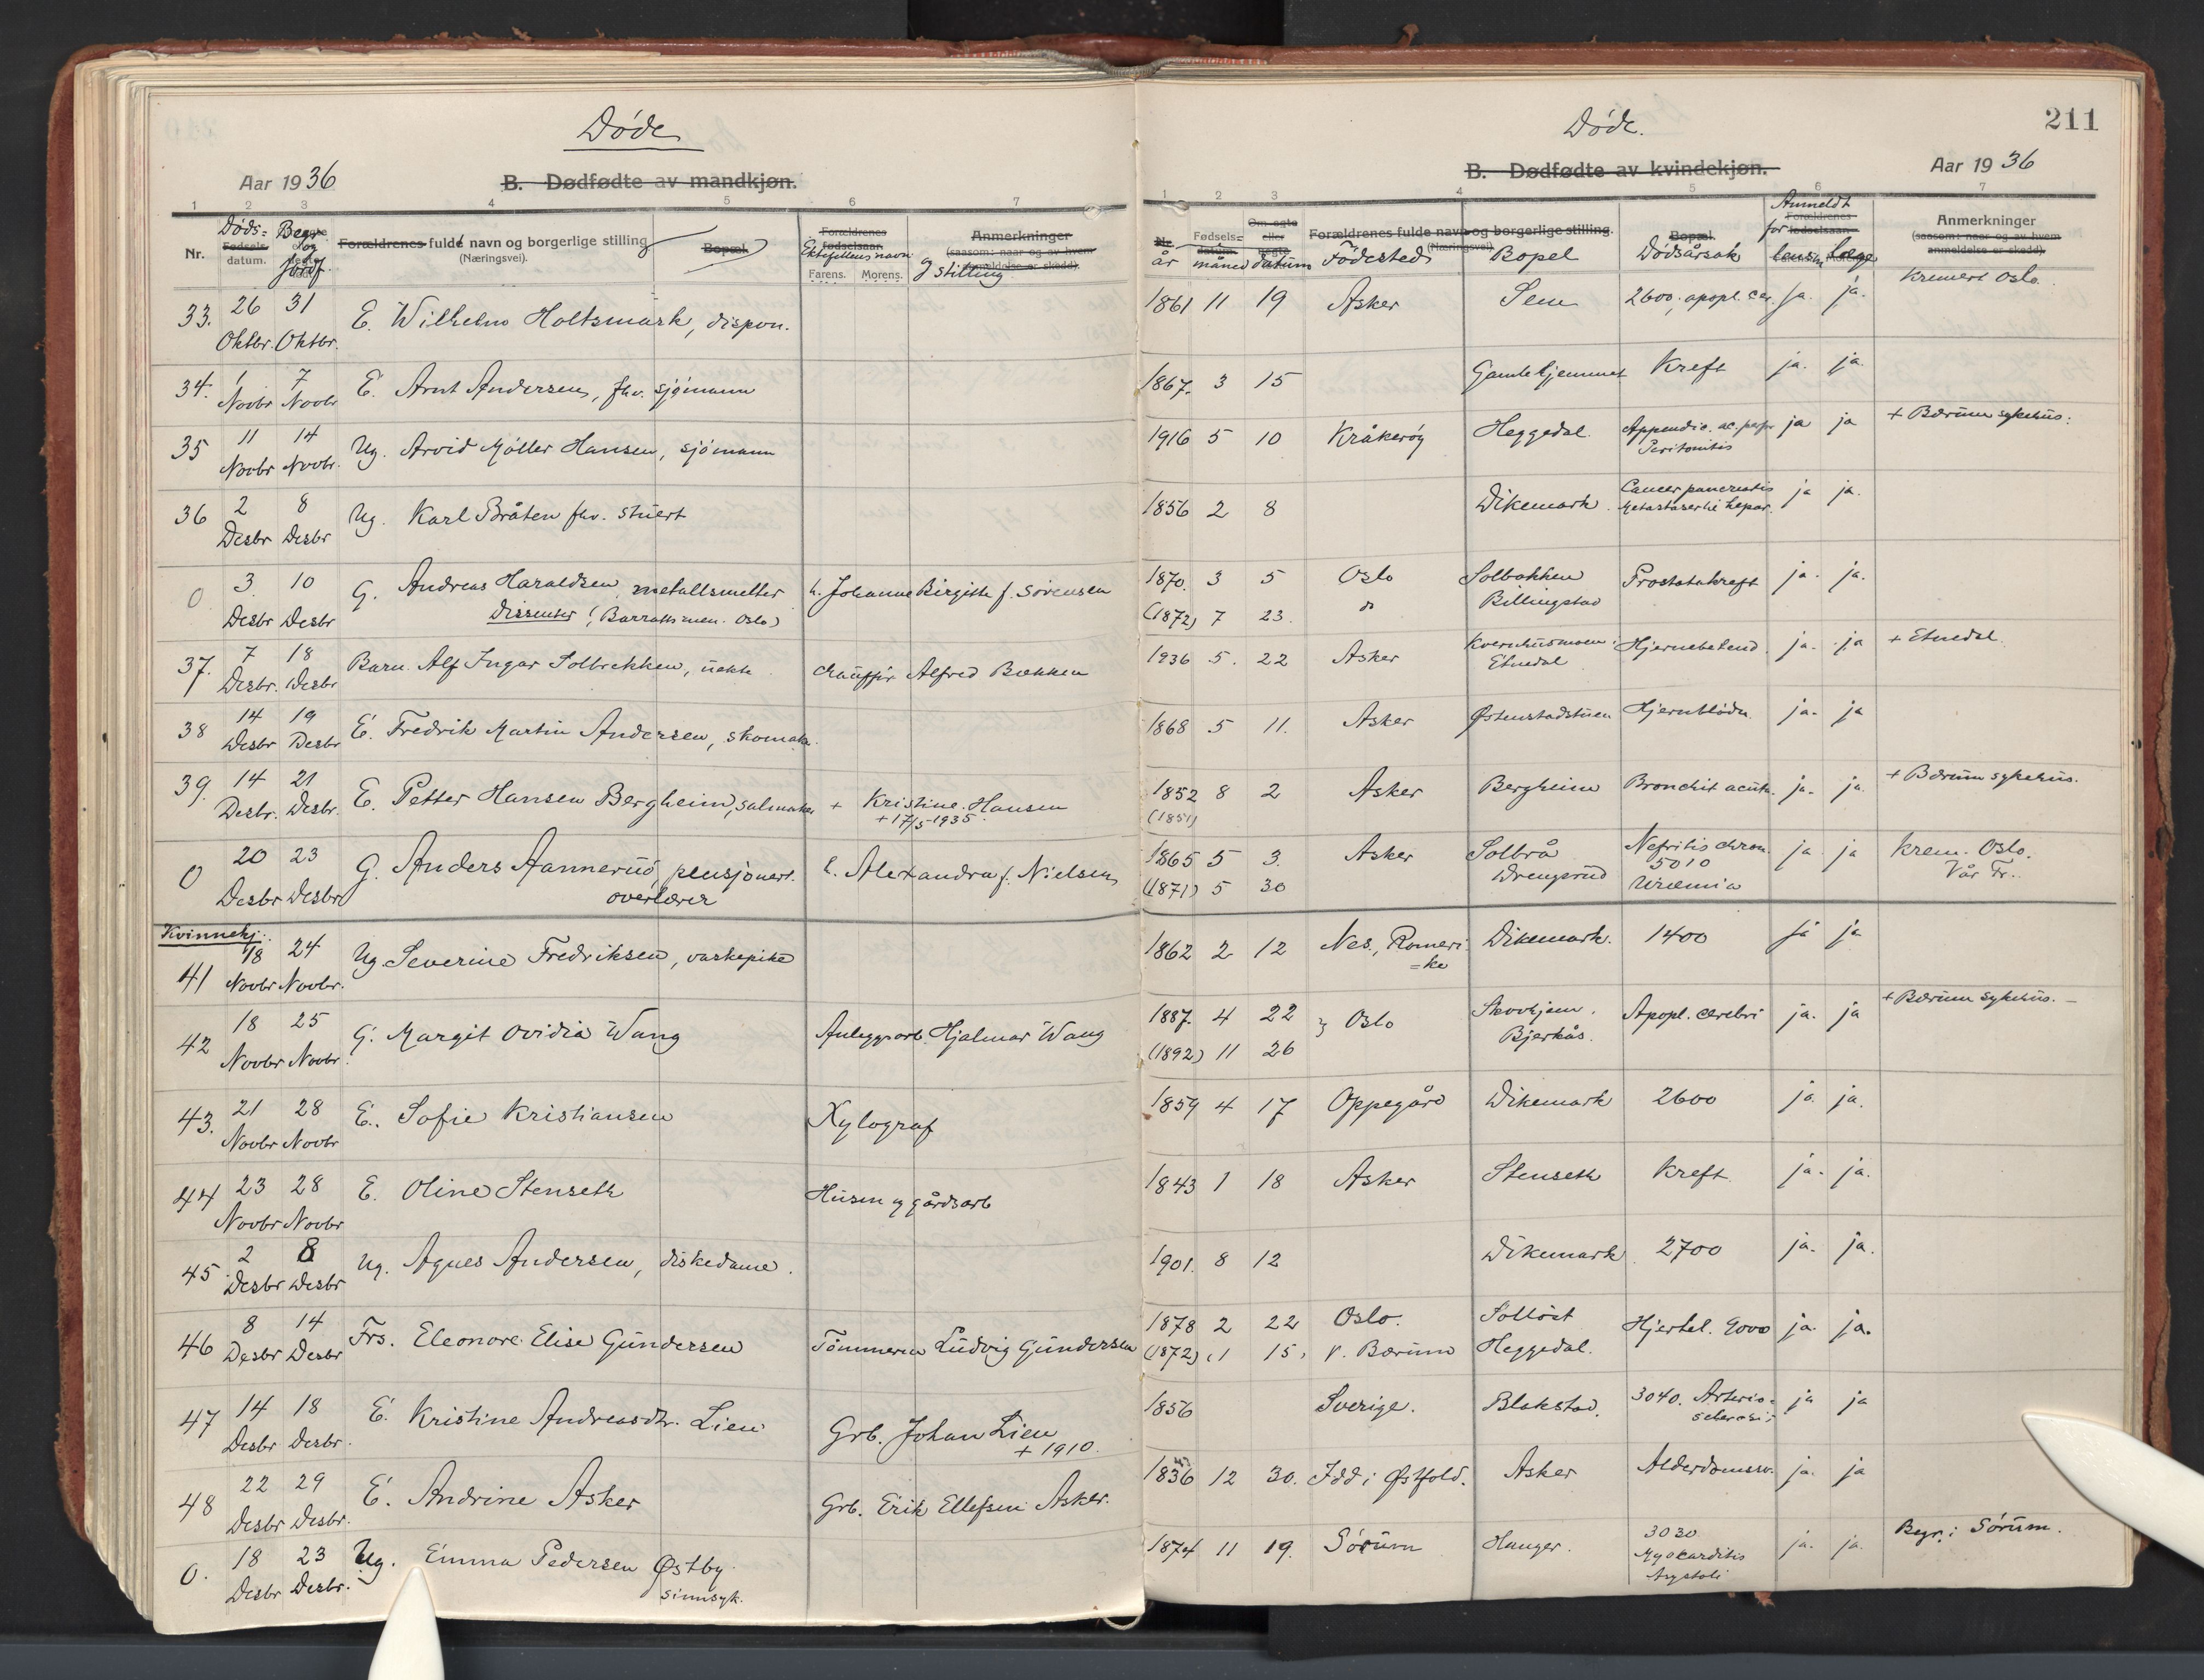 Døde
Aar 1936
B. Dødfødte av mandkjøn.
1 2 3 4 5 6 7
Nr.
Døds=
Fødsels-
datum.
Begr.
og
Jordf.
Forældrenes fulde navn og borgerlige stilling
(Næringsvei).
Bopæl.
Forældrenes
fødselsaar.
Ektefellens navn
Farens. Morens.
og stilling
Anmerkninger
(saasom: naar og av hvem
anmeldelse er skedd).
33. 26 Oktbr. 31 Oktbr. E. Wilhelm Holtsmark, dispon.
34. 1 Novbr 7 Novbr E. Arnt Andersen, fhv. sjømann
35 11 Novbr 14 Novbr. Ug. Arvid Møller Hansen, sjømann
36 2 Desbr 8 Desbr Ug. Karl Bråten fhv. stuert
0 3. Desbr 10 Desbr G. Andreas Haraldsen, metallsmelter h. Johanne Birgitte f. Sørensen
Dissenter (Barratts men. Oslo)
37. 7 Desbr. 18 Desbr Barn. Alf Ingar Solbrekken, uekte chauffør Alfred Bekken
38 14 Desbr 19 Desbr E. Fredrik Martin Andersen, skomak.
39. 14 Desbr. 21 Desbr. E. Petter Hansen Bergheim, salmaker + Kristine Hansen
+ 17/5-1935.
0 20 Desbr 23 Desbr G. Anders Aannerud, pensjonert. h. Alexandra f. Nielsen
overlærer
Kvinnekj.
41 18 Novbr 24 Novbr. Ug. Severine Fredriksen, vaskepike
42 18 Novbr 25 Novbr. G. Margit Ovidia Wang Anleggsarb. Hjalmar Wang
43. 21 Novbr 28 Novbr E. Sofie Kristiansen Xylograf
44 23 Novbr 28 Novbr E. Oline Stenseth Husm og gårdsarb
45 2 Desbr 8 Desbr Ug. Agnes Andersen, diskedame.
46 8 Desbr 14 Desbr Frs. Eleonore Elise Gundersen Tømmerm Ludvig Gundersen
47 14 Desbr 18 Desbr. E. Kristine Andreasdtr. Lien Grb. Johan Lien
+ 1910.
48 22 Desbr 29 Desbr. E. Andrine Asker Grb. Erik Ellefsen Asker.
0. 18 Desbr 23 Desbr. Ug. Emma Pedersen Østby
sinnsyk.
Døde.
211
B. Dødfødte av kvindekjøn.
Aar 1936
1 2 3 4 5 6 7
Nr.
år
Fødsels=
datum.
måned
Om egte
eller
uegte
datum
Forældrenes fulde navn og borgerlige stilling.
(Næringsvei).
Fødested
Bopel
Bopæl.
Dødsårsak
Anmeldt
Forældrenes
for fødselsaar.
lensm Læge
Anmerkninger
(saasom: naar og av hvem
anmeldelse er skedd).
1861 11 19 Asker Sem 2600, apopl. cer. ja. ja. Kremert Oslo.
1867. 3 15 Gamlehjemmet Kreft ja. ja.
1916 5 10 Kråkerøy Heggedal. Appendic. ac. perf. ja ja + Bærum sykehus.
Peritonitis
1856 2 8 Dikemark. Cancer pancreatis ja ja.
Metastaser til hepar.
1870. 3 5 Oslo Solbakken Prostatakreft ja. ja.
(1872) 7 23. Billingstad
1936 5. 22 Asker Kvernhusmoen. Hjernebetend. ja. ja + Etnedal
Etnedal
1868 5 11. Asker Østenstadstuen Hjerneblødn. ja. ja
1852 8 2 Asker Bergheim Bronchit acuta. ja. ja. + Bærum sykehus.
(1851)
1865 5 3. Asker Solbrå Nefritis chron. ja ja Krem. Oslo.
5010 Vår Fr..
(1871) 5 30 Drengsrud Uræmia
1862 2 12 Nes, Romeri Dikemark. 1400 ja ja
=ke
1887. 4 22 } Oslo Skovhjem. Apopl. cerebri ja. ja + Bærum sykehus. –
(1892) 11 26 Bjerkås.
1859 4 17 Oppegård Dikemark 2600 ja. ja.
1843 1 18 Asker Stenseth Kreft ja. ja.
1901. 8 12 Dikemark 2700 ja. ja.
1878 2 22 Oslo. Solløst Hjertel. 9000 ja. ja.
(1872) 1 15. V. Bærum Heggedal.
1856 Sverige. Blakstad. 3040. Arterio= ja ja
sclerosis
1836 12 30. Idd i Østfold. Asker Alderdomssv. ja. ja
1874 11 19. Sørum Hanger. 3030 ja. ja. Begr. i Sørum.
Myocarditis
Asystoli